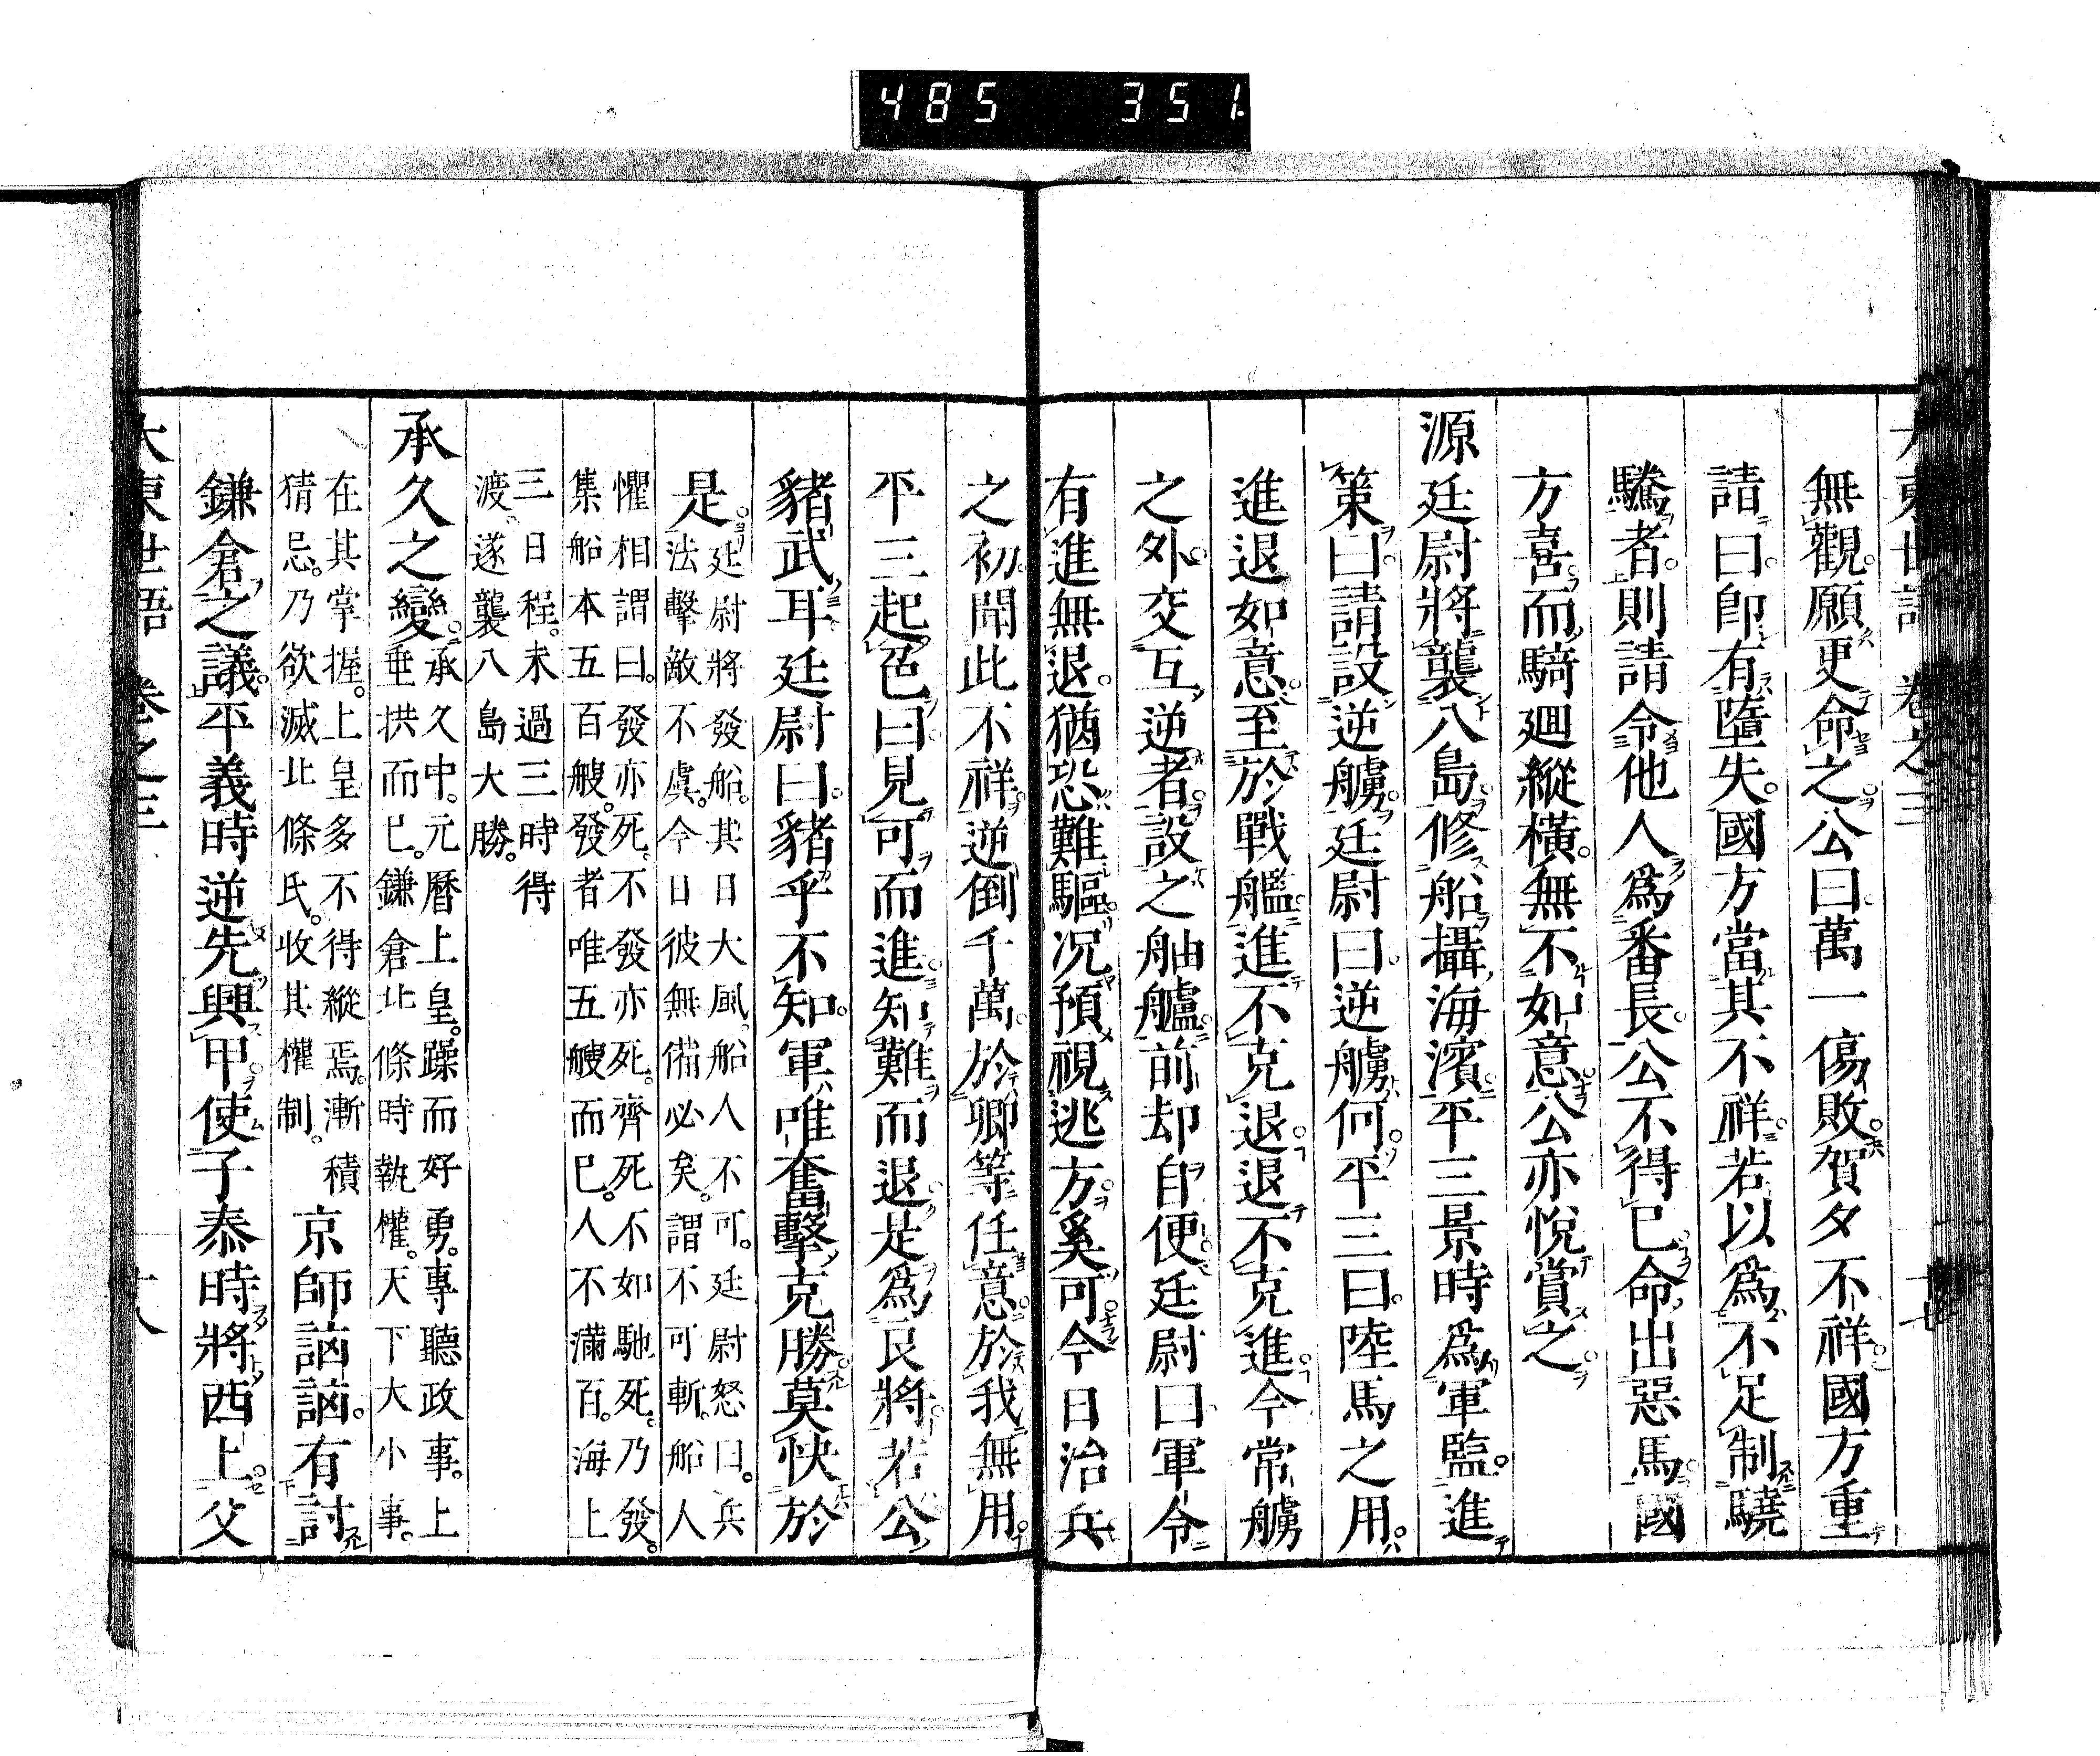 485 351
大東世語 卷之三
無觀願更命之公曰萬一傷敗賀夕不祥國方重
請曰卽有墮失國方當其不祥若以爲不足制驍
驕者則請令他人爲番長公不得已命出惡馬國
方喜而騎廻縱橫無不如意公亦悅賞之
源廷尉將襲八島修船攝海濱平三景時爲軍監進
策曰請設逆艣廷尉曰逆艣何平三曰陸馬之用
進退如意至於戰艦進不克退退不克進今常艣
之外交互逆者設之舳艫前却自便廷尉曰軍令
有進無退猶恐難驅况預視逃方奚可今日治兵
之初聞此不祥逆倒千萬於卿等任意於我無用
平三起色曰見可而進知難而退是爲良將若公
豬武耳廷尉曰豬乎不知軍唯奮擊克勝莫快於
是廷尉將發船其日大風船人不可廷尉怒曰兵
法擊敵不虞今日彼無備必矣謂不可斬船人
懼相謂曰發亦死不發亦死齊死不如馳死乃發
集船本五百艘發者唯五艘而已人不滿百海上
三日程未過三時得
渡遂襲八島大勝
承久之變承久中元曆上皇躁而好勇事聽政事上
垂拱而已鎌倉北條時執權天下大小事
在其掌握上皇多不得縱焉漸積
猜忌乃欲滅北條氏收其權制
京師詾詾有討
鎌倉之議平義時逆先興甲使子泰時將西上父
大東世語 卷之三 十八